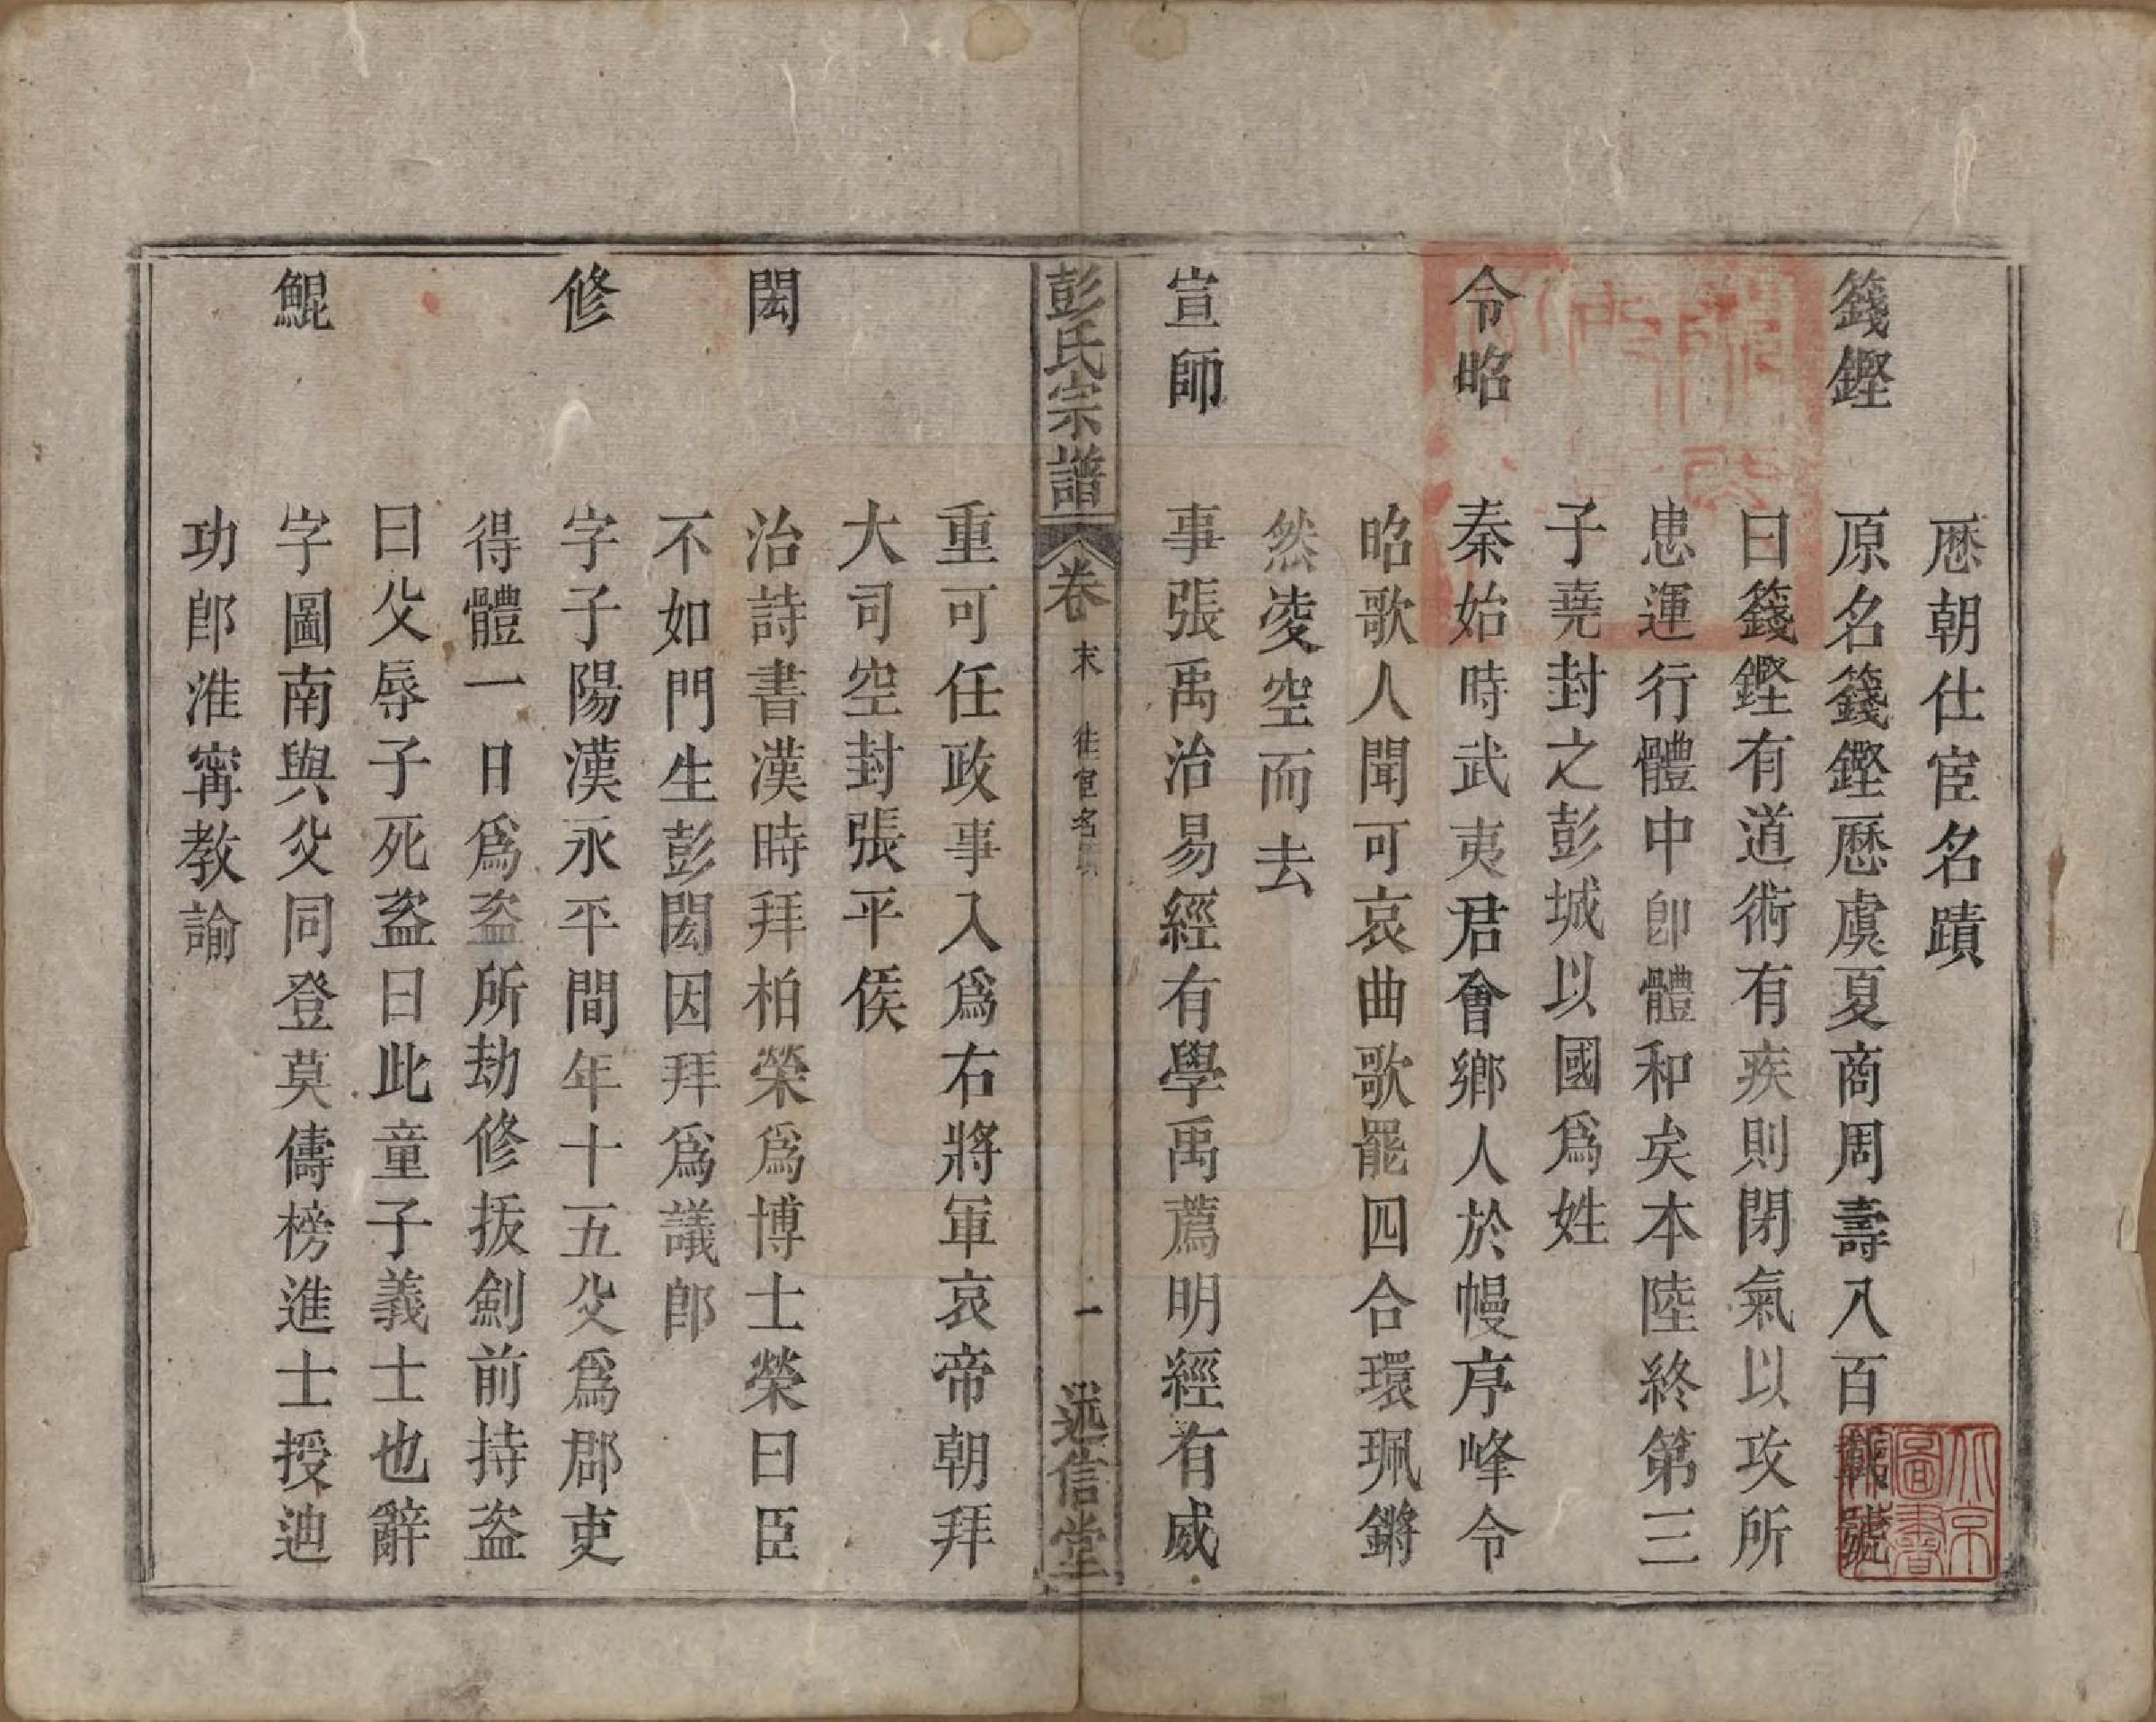 歷朝仕宦名蹟
籛鏗 原名籛鏗歷虞夏商周壽八百載號
曰籛鏗有道術有疾則閉氣以攻所
患運行體中卽體和矣本陸終第三
子堯封之彭城以國爲姓
令昭 秦始時武夷君會鄉人於幔亭峰令
昭歌人聞可哀曲歌罷四合環珮鏘
然凌空而去
宣師 事張禹治易經有學禹薦明經有威
彭氏宗譜 卷末 仕宦名 一 述信堂
重可任政事入爲右將軍哀帝朝拜
大司空封張平侯
閎 治詩書漢時拜柏榮爲博士榮曰臣
不如門生彭閎因拜爲議郎
修 字子陽漢永平間年十五父爲郡吏
得體一日爲盜所劫修拔劍前持盜
曰父辱子死盜曰此童子義士也辭
鯤 字圖南與父同登莫儔榜進士授迪
功郎淮寧教諭
北京圖書